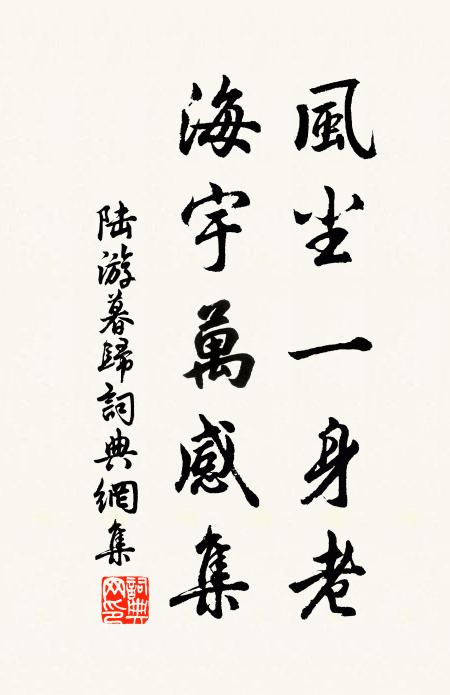 風尘一身老
海宇萬感集
陆游暮歸詞典網集
詞典网印